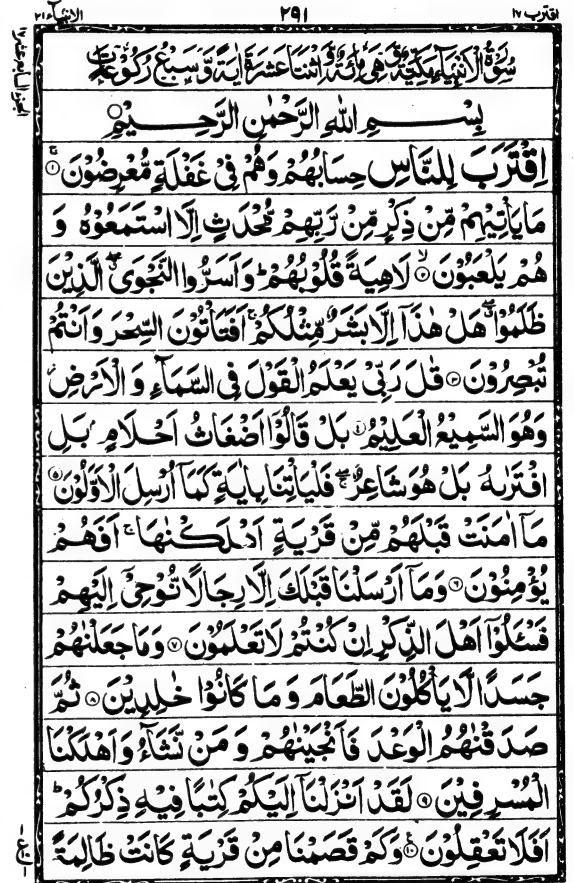 اقترب ١٧
٢٩١
الانبیاء ٢١
سُوْرَةُ الْاَنْۢبِیَآءِ مَكِّیَّةٌ وَّهِیَ مِائَةٌ وَّاثْنَتَا عَشْرَةَ اٰیَةً وَّسَبْعُ رُكُوْعَاتٍ
بِسْمِ اللهِ الرَّحْمٰنِ الرَّحِیْمِ
اِقْتَرَبَ لِلنَّاسِ حِسَابُهُمْ وَهُمْ فِیْ غَفْلَةٍ مُّعْرِضُوْنَ ۚ﴿١﴾
مَا یَاْتِیْهِمْ مِّنْ ذِكْرٍ مِّنْ رَّبِّهِمْ مُّحْدَثٍ اِلَّا اسْتَمَعُوْهُ وَ
هُمْ یَلْعَبُوْنَ ۙ﴿٢﴾ لَاهِیَةً قُلُوْبُهُمْ ؕ وَاَسَرُّوا النَّجْوَی ۖ الَّذِیْنَ
ظَلَمُوْا ۖ هَلْ هٰذَاۤ اِلَّا بَشَرٌ مِّثْلُكُمْ ۚ اَفَتَاْتُوْنَ السِّحْرَ وَاَنْتُمْ
تُبْصِرُوْنَ ﴿٣﴾ قٰلَ رَبِّیْ یَعْلَمُ الْقَوْلَ فِی السَّمَآءِ وَ الْاَرْضِ ز
وَهُوَ السَّمِیْعُ الْعَلِیْمُ ﴿٤﴾ بَلْ قَالُوْۤا اَضْغَاثُ اَحْلَامٍۭ بَلِ
افْتَرٰىهُ بَلْ هُوَ شَاعِرٌ ۖۚ فَلْیَاْتِنَا بِاٰیَةٍ كَمَاۤ اُرْسِلَ الْاَوَّلُوْنَ ﴿٥﴾
مَاۤ اٰمَنَتْ قَبْلَهُمْ مِّنْ قَرْیَةٍ اَهْلَكْنٰهَا ۚ اَفَهُمْ
یُؤْمِنُوْنَ ﴿٦﴾ وَمَاۤ اَرْسَلْنَا قَبْلَكَ اِلَّا رِجَالًا نُّوْحِیْۤ اِلَیْهِمْ
فَسْـَٔلُوْۤا اَهْلَ الذِّكْرِ اِنْ كُنْتُمْ لَا تَعْلَمُوْنَ ﴿٧﴾ وَمَا جَعَلْنٰهُمْ
جَسَدًا لَّا یَاْكُلُوْنَ الطَّعَامَ وَ مَا كَانُوْا خٰلِدِیْنَ ﴿٨﴾ ثُمَّ
صَدَقْنٰهُمُ الْوَعْدَ فَاَنْجَیْنٰهُمْ وَ مَنْ نَّشَآءُ وَ اَهْلَكْنَا
الْمُسْرِفِیْنَ ﴿٩﴾ لَقَدْ اَنْزَلْنَاۤ اِلَیْكُمْ كِتٰبًا فِیْهِ ذِكْرُكُمْ ؕ
اَفَلَا تَعْقِلُوْنَ ﴿١٠﴾ وَكَمْ قَصَمْنَا مِنْ قَرْیَةٍ كَانَتْ ظَالِمَةً
الجزء السابع عشر ١٧